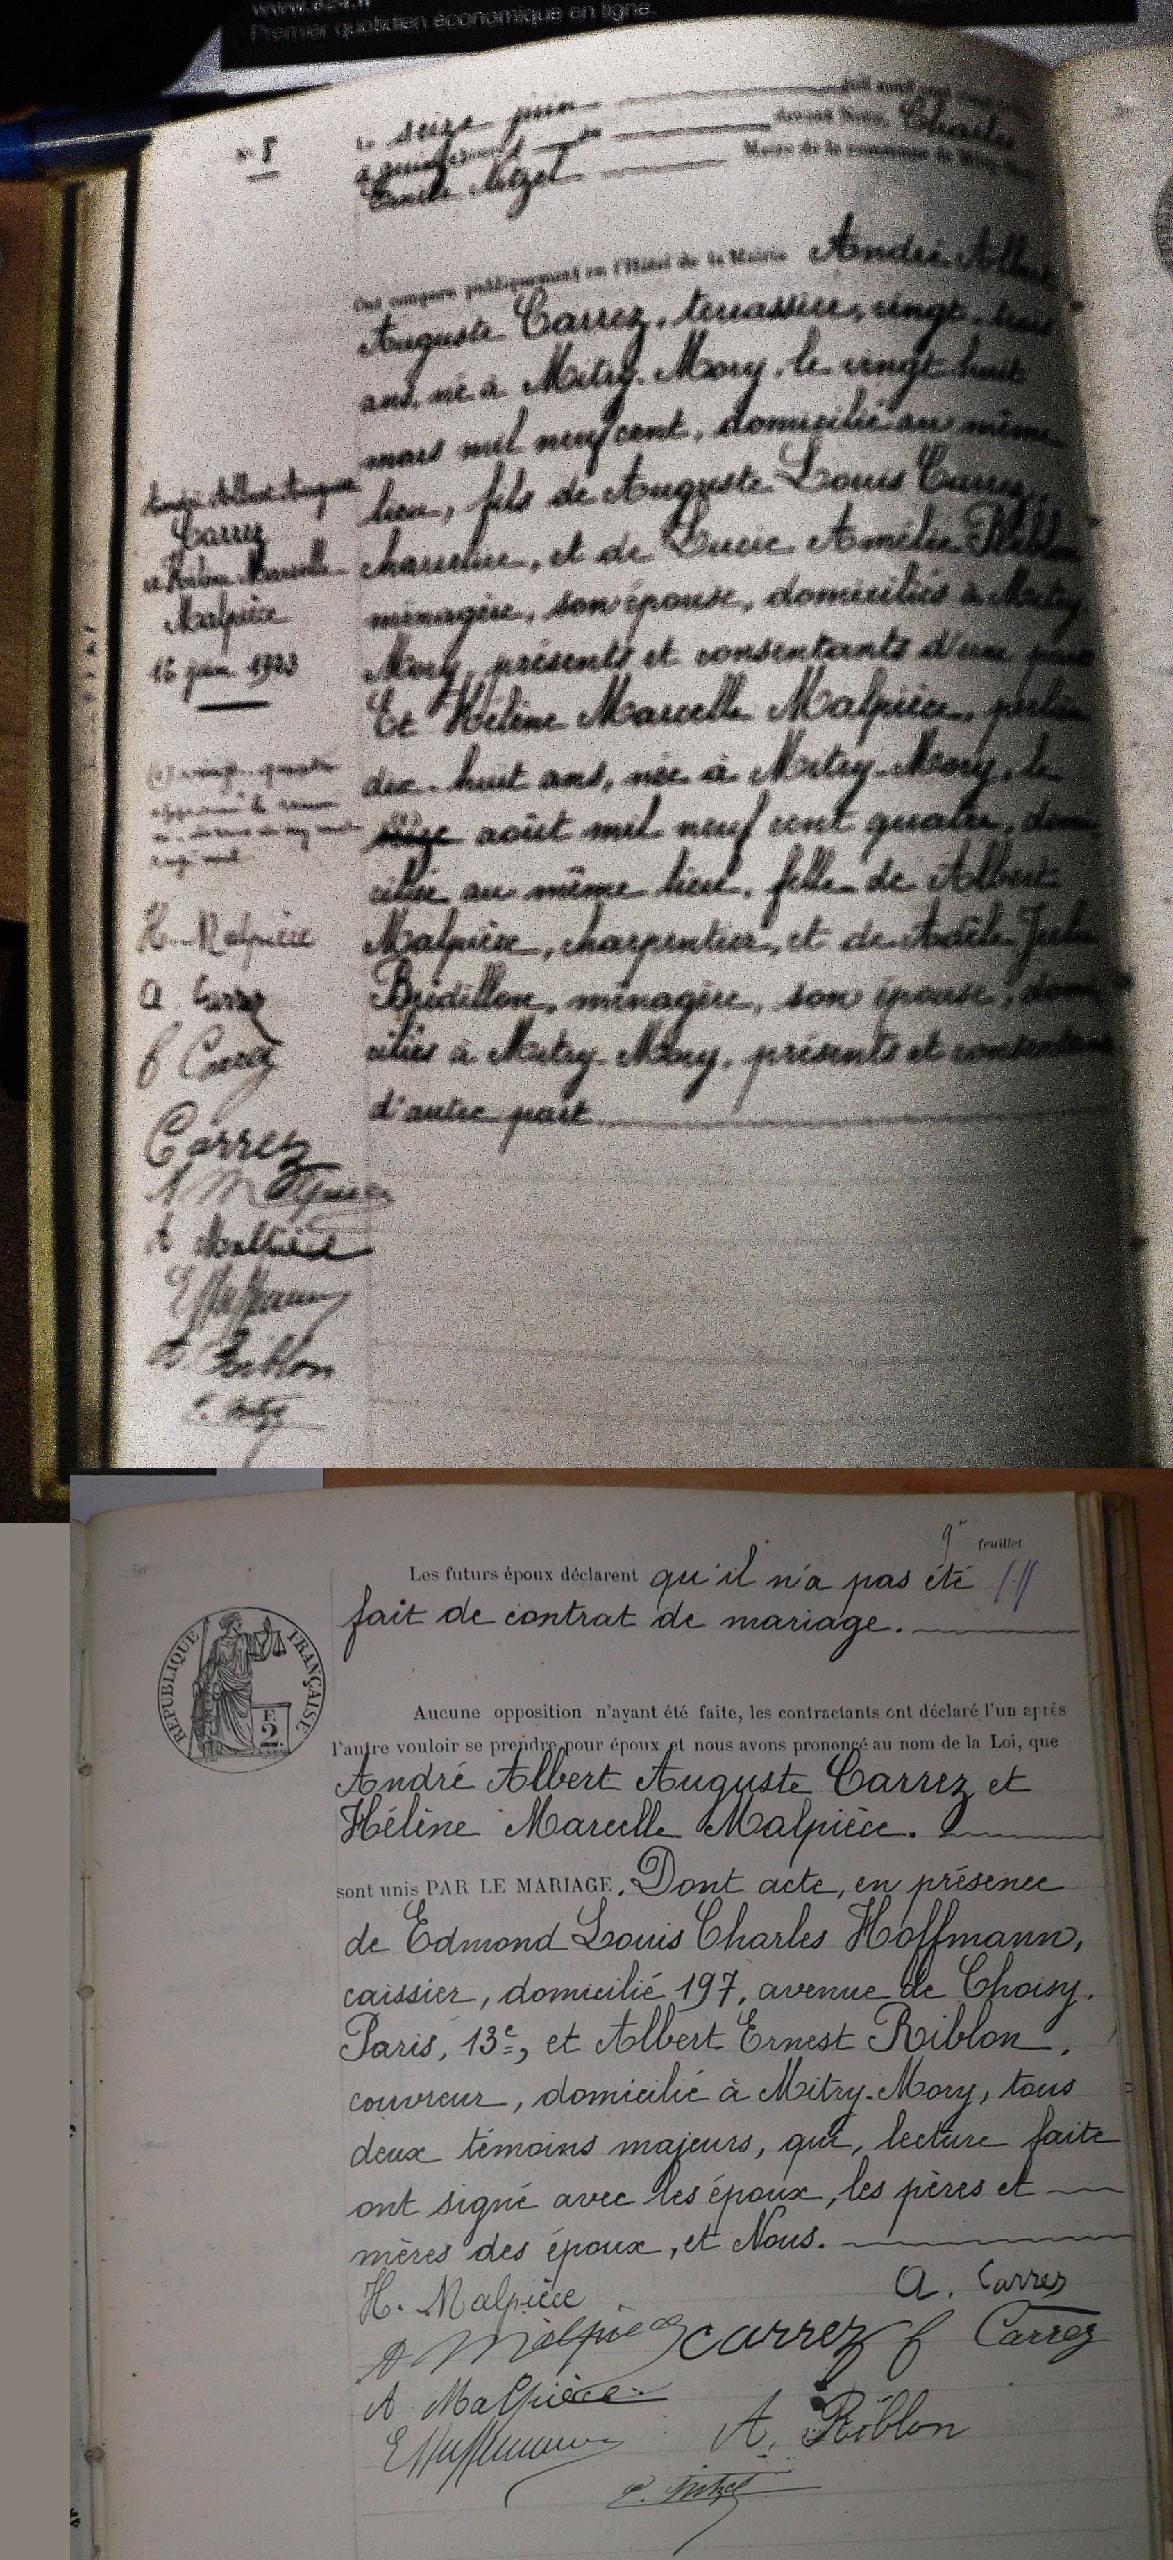 Premier quotidien économique en ligne
N° 8
Le seize juin mil neuf cent
devant Nous, Charles
Emile Maire de la commune de Mitry
Ont comparu publiquement en l'Hôtel de la Mairie André Albert
Auguste Carrez, terrassier, vingt-trois
ans, né à Mitry-Mory, le vingt huit
mars mil neuf cent, domicilié au même
lieu, fils de Auguste Louis Carrez,
charretier, et de Lucie Amélie Riblon
ménagère, son épouse, domiciliés à Mitry
Mory, présents et consentants d'une part
Et Hélène Marcelle Malpièce,
dix-huit ans, née à Mitry-Mory, le
août mil neuf cent quatre, domi
ciliée au même lieu, fille de Albert
Malpièce, charpentier, et de Adèle
ménagère, son épouse, domi
ciliés à Mitry-Mory, présents et consentants
d'autre part
André Albert Auguste
Carrez
et Hélène Marcelle
Malpièce
16 juin 1923
H. Malpièce
A Carrez
f Carrez
Carrez
A Malpièce
A Malpièce
A. Riblon
9e feuillet
Les futurs époux déclarent qu'il n'a pas été
fait de contrat de mariage.
RÉPUBLIQUE FRANÇAISE
F.
2.
Aucune opposition n'ayant été faite, les contractants ont déclaré l'un après
l'autre vouloir se prendre pour époux et nous avons prononcé au nom de la Loi, que
André Albert Auguste Carrez et
Hélène Marcelle Malpièce.
sont unis PAR LE MARIAGE. Dont acte, en présence
de Edmond Louis Charles Hoffmann,
caissier, domicilié 197, avenue de Choisy.
Paris, 13e, et Albert Ernest Riblon,
couvreur, domicilié à Mitry-Mory, tous
deux témoins majeurs, qui, lecture faite
ont signé avec les époux, les pères et
mères des époux, et Nous.
H. Malpièce A. Carrez
A Malpièce Carrez f Carrez
A Malpièce
A. Riblon